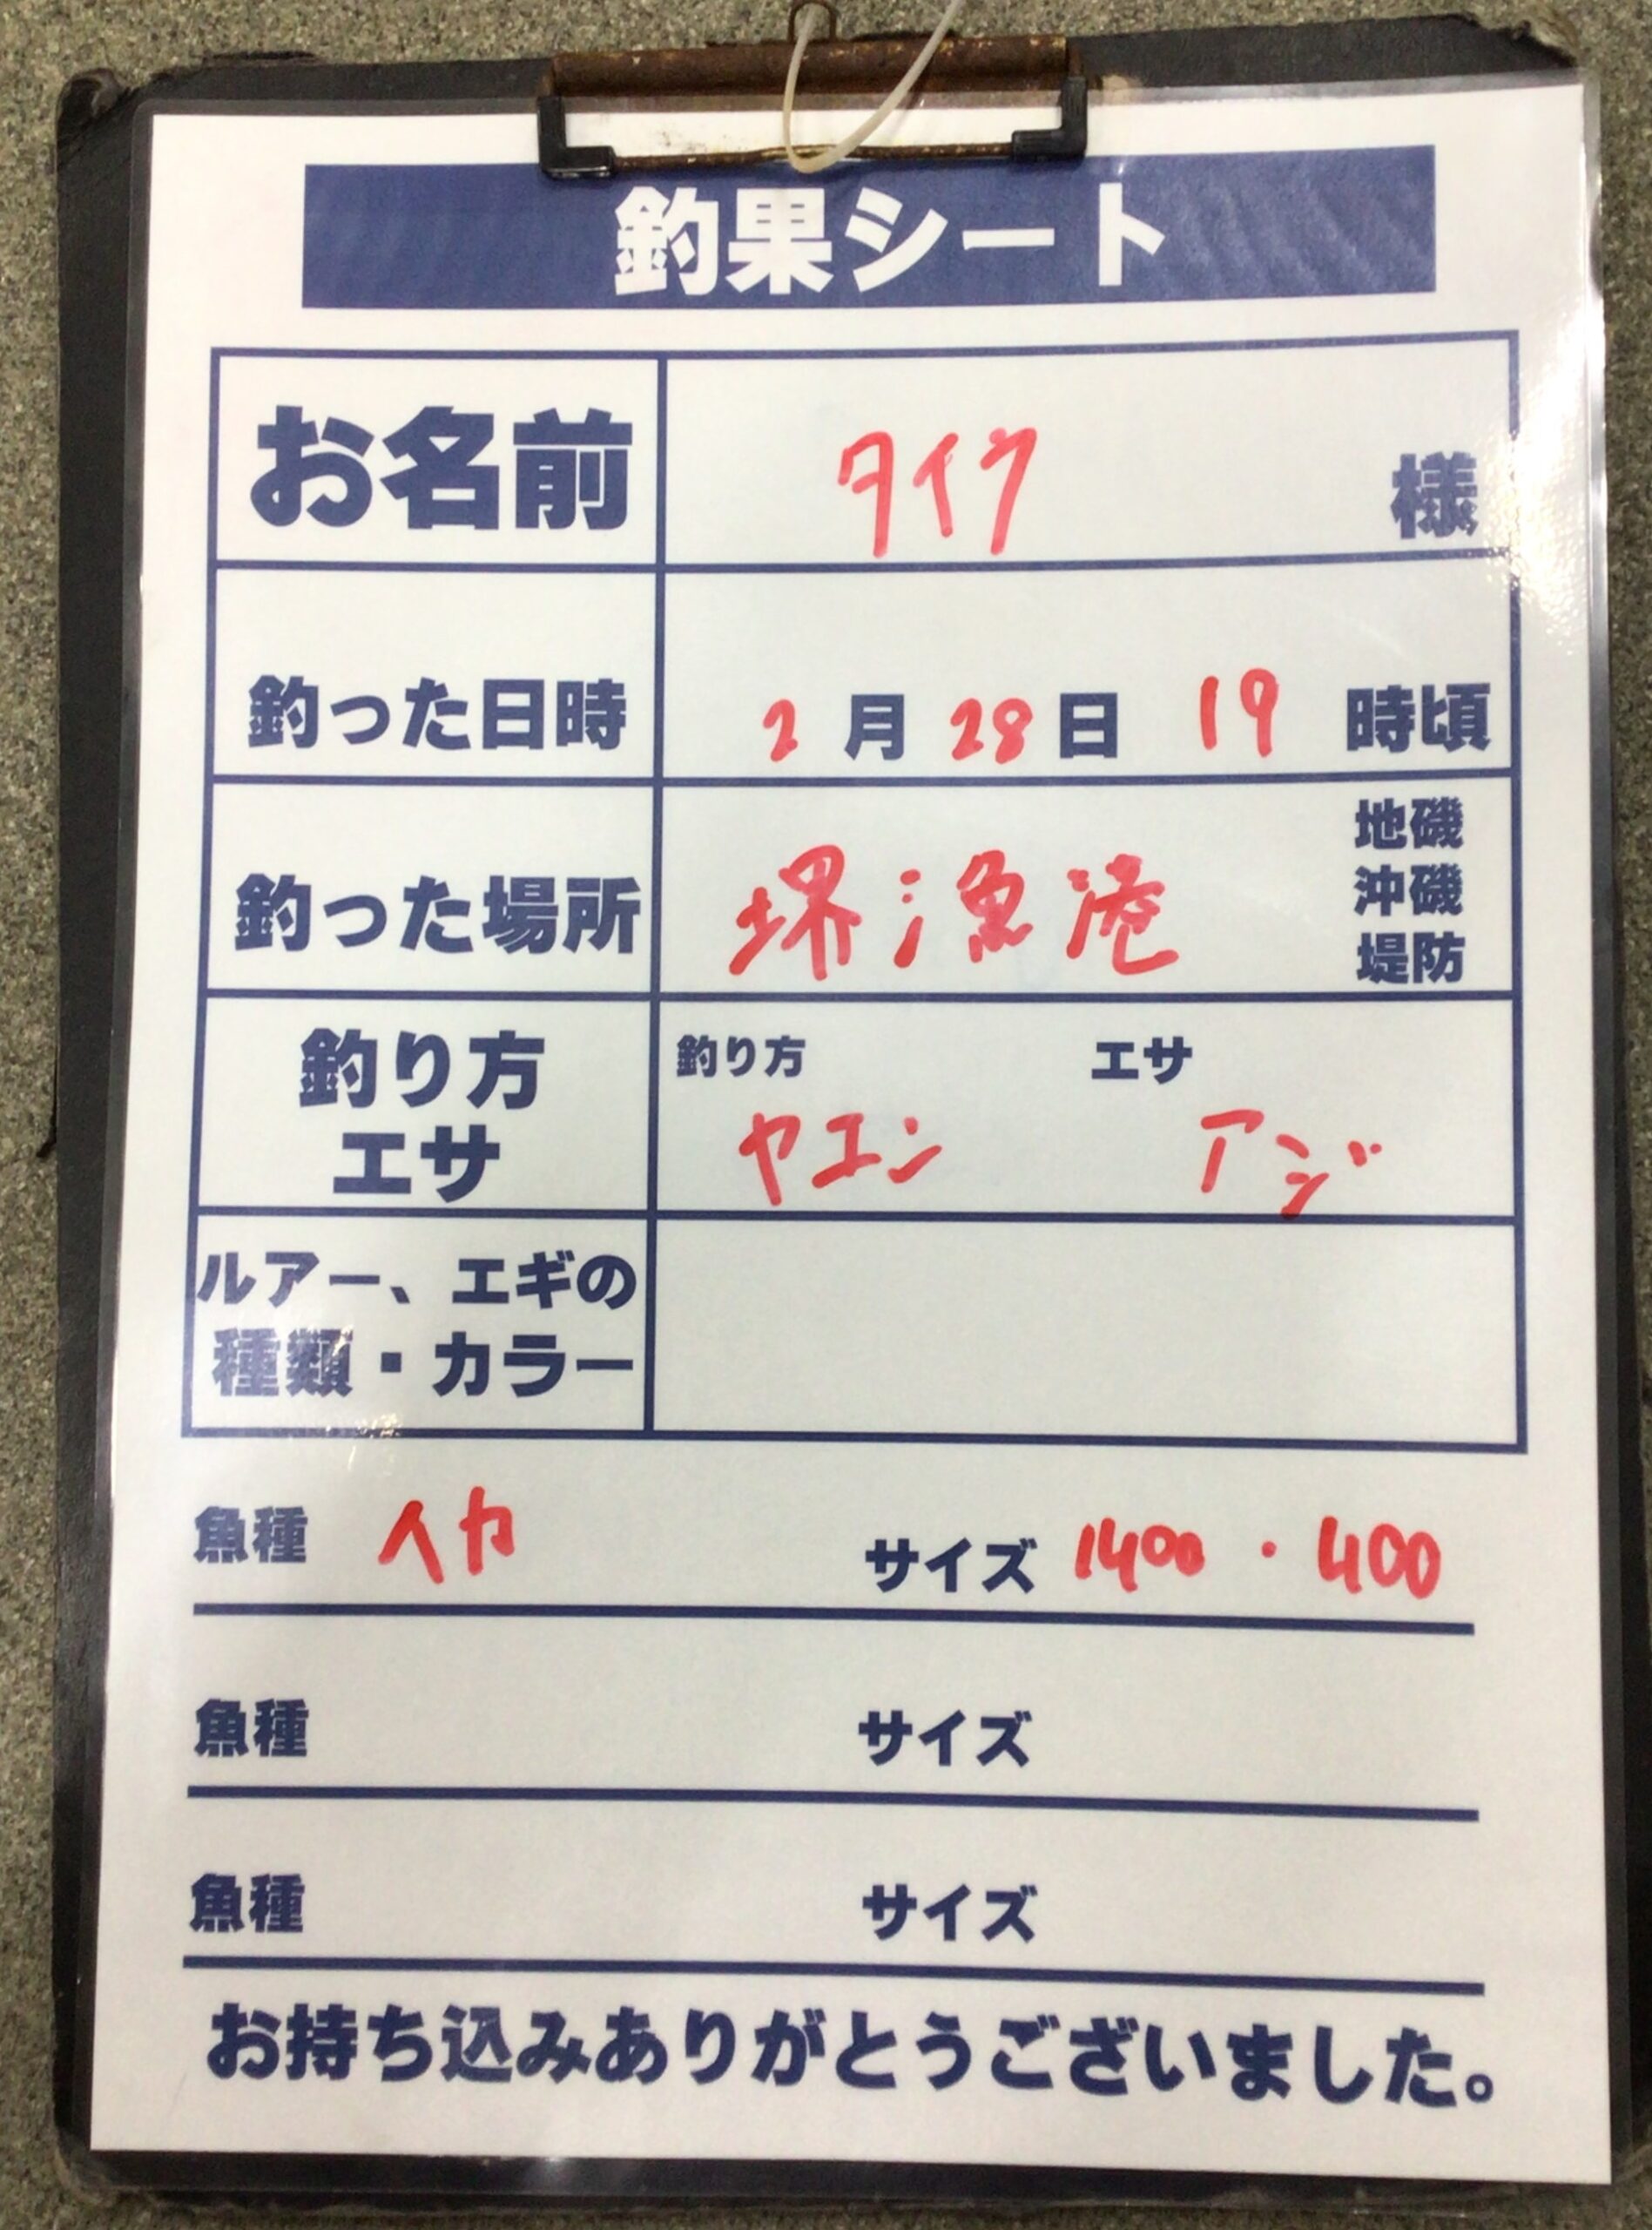 釣果シート
お名前 タイク 様
釣った日時 2月28日 19時頃
釣った場所 堺漁港 地磯
沖磯
堤防
釣り方 エサ
釣り方 エサ
ヤエン アジ
ルアー、エギの
種類・カラー
魚種 イカ サイズ 1400・400
魚種 サイズ
魚種 サイズ
お持ち込みありがとうございました。